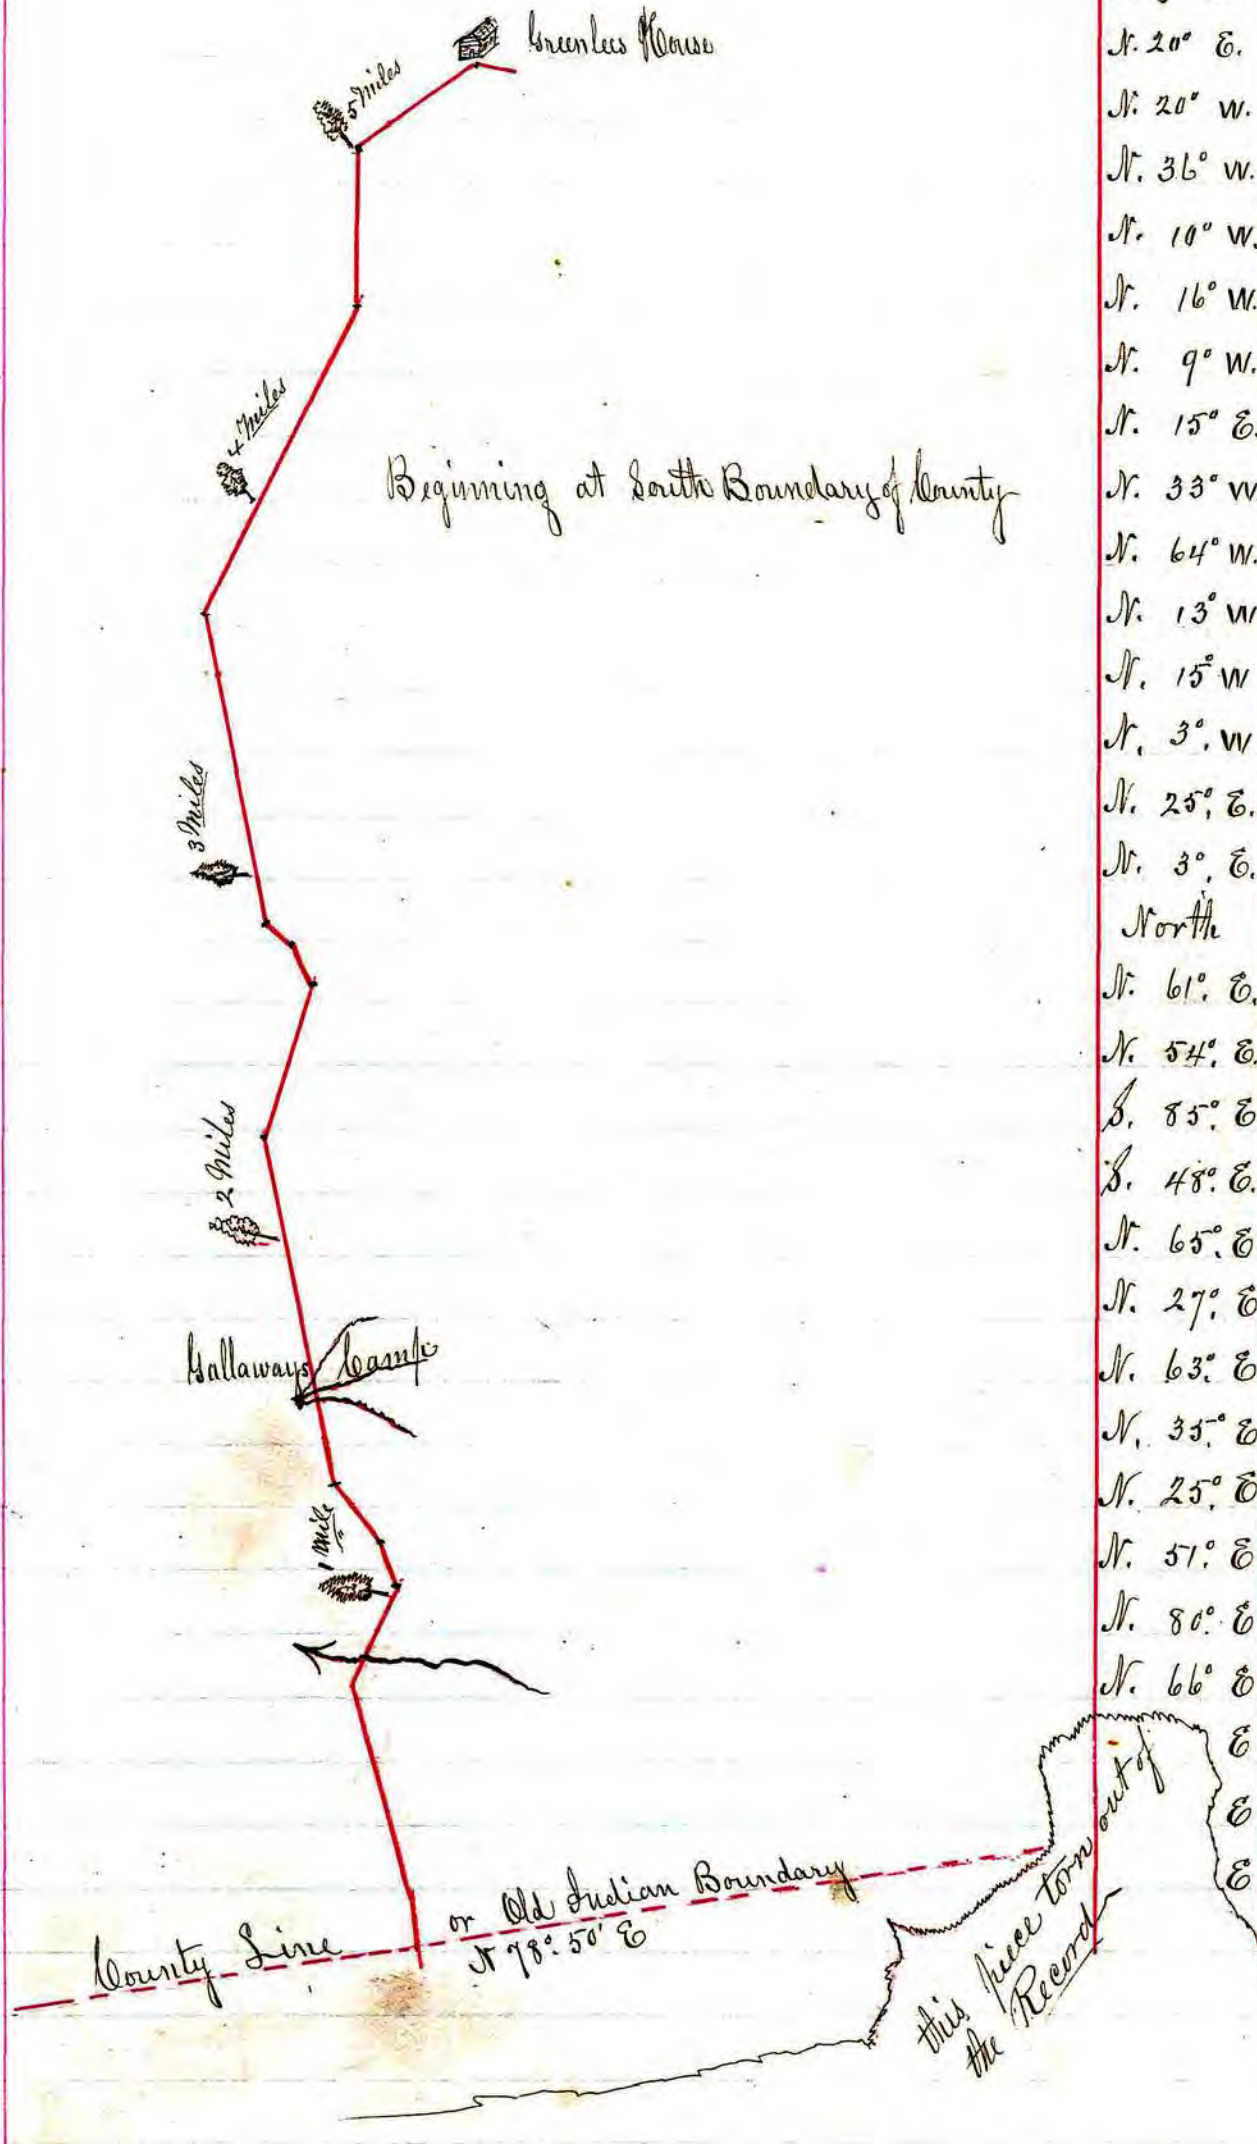 Greenlees House
5 Miles
4 Miles
Beginning at South Boundary of County
3 Miles
2 Miles
Gallaways Camp
1 Mile
County Line or Old Indian Boundary
N 78° 50' E
this piece torn out of
the Record
N. 20° E.
N. 20° W.
N. 36° W.
N. 10° W.
N. 16° W.
N. 9° W.
N. 15° E.
N. 33° W
N. 64° W.
N. 13° W
N. 15° W
N. 3° W
N. 25° E.
N. 3° E.
North
N. 61° E.
N. 54° E.
S. 85° E
S. 48° E.
N. 65° E
N. 27° E
N. 63° E
N. 35° E
N. 25° E
N. 51° E
N. 80° E
N. 66° E
E
E
E